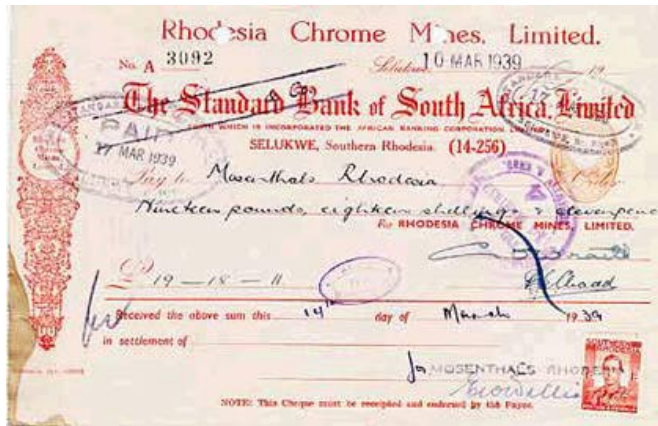 Rhodesia Chrome Mines, Limited.
No. A 3092
Selukwe, 10 MAR 1939 19
The Standard Bank of South Africa, Limited
WITH WHICH IS INCORPORATED THE AFRICAN BANKING CORPORATION LIMITED
SELUKWE, Southern Rhodesia. (14-256)
PAID
17 MAR 1939
Pay to Mosenthals Rhodesia or Order
Nineteen pounds, eighteen shillings & elevenpence
For RHODESIA CHROME MINES, LIMITED.
£ 19 - 18 - 11
Received the above sum this 14th day of March 1939
in settlement of
for MOSENTHALS RHODESIA
SOUTHERN RHODESIA
NOTE: This Cheque must be receipted and endorsed by the Payee.